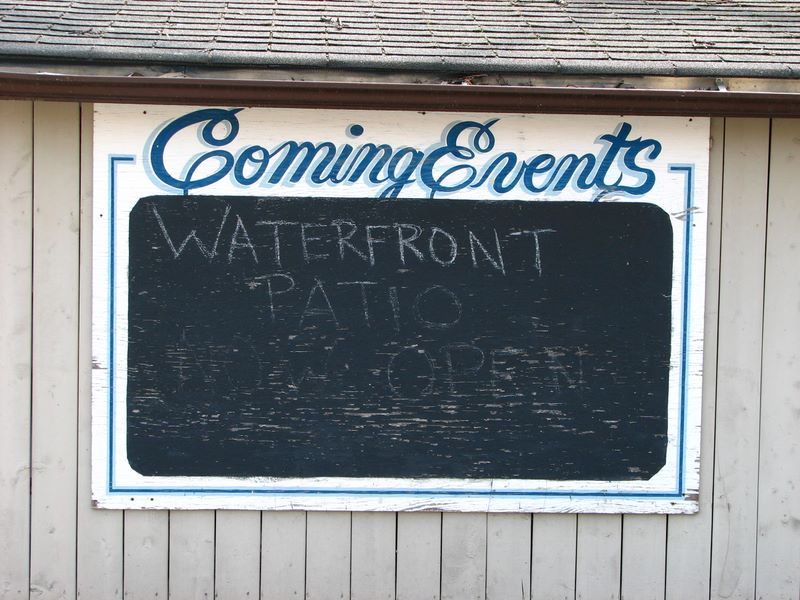 Coming Events
WATERFRONT
PATIO
NOW OPEN